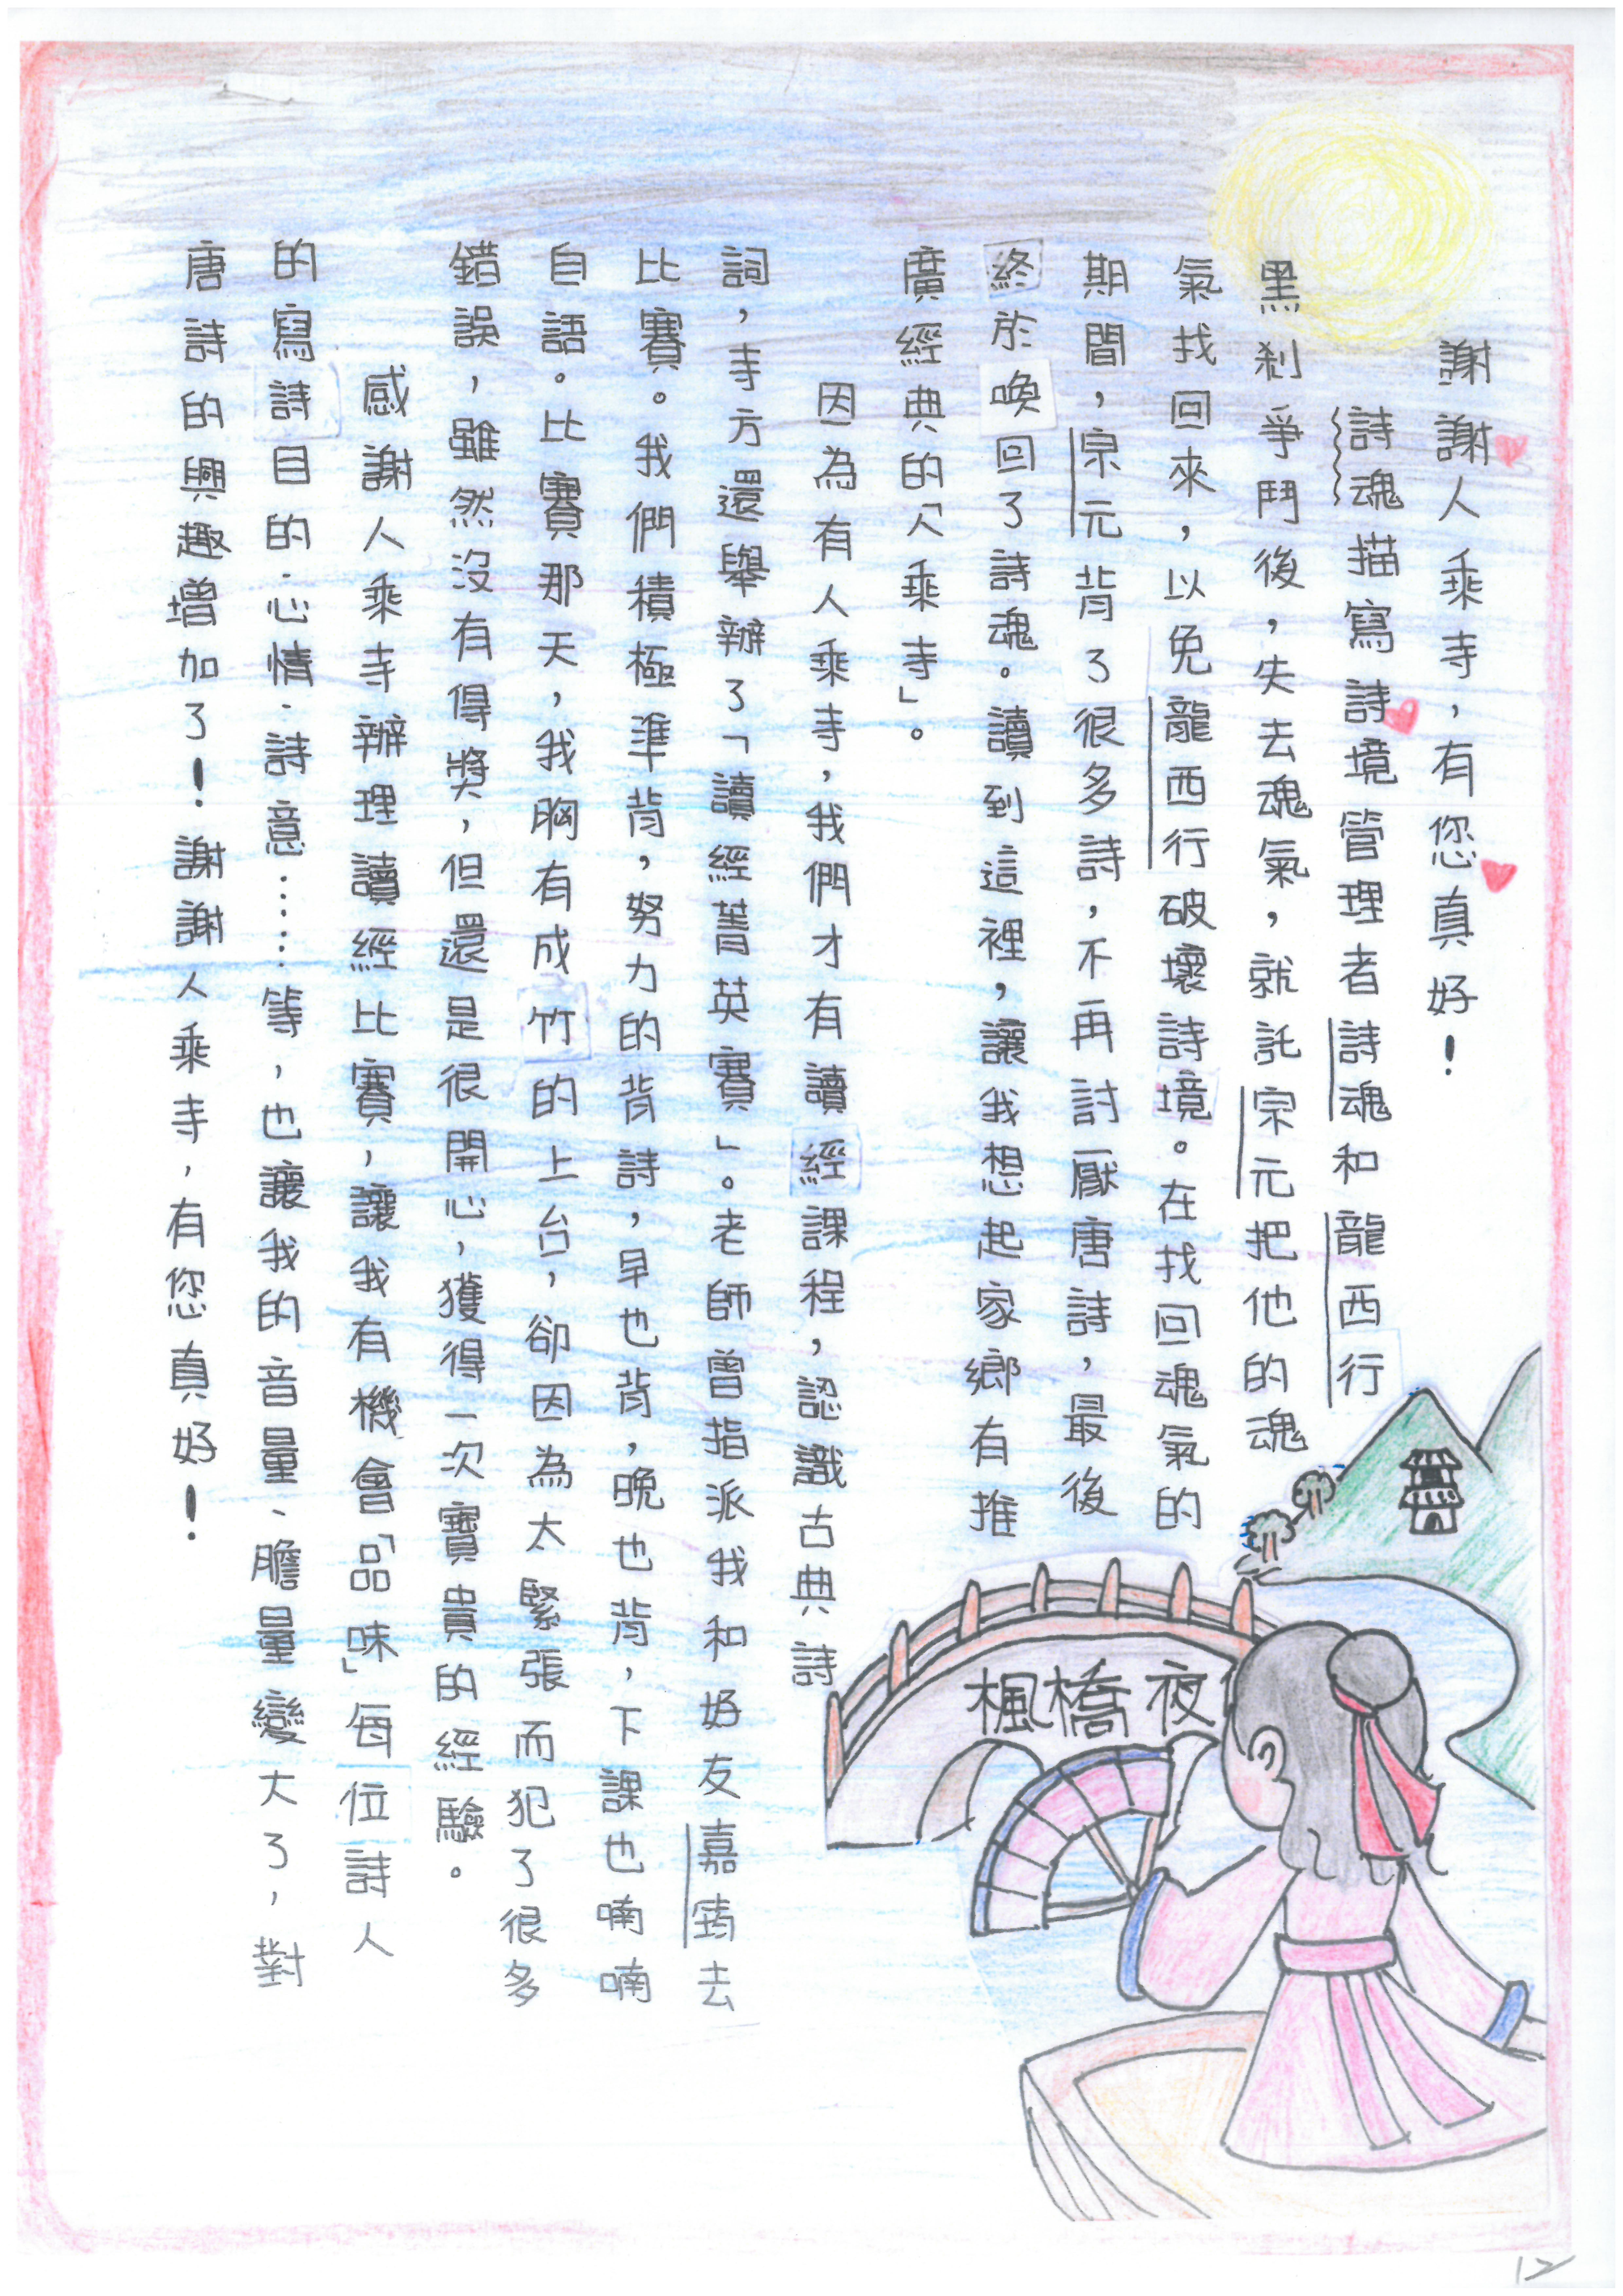 謝謝人乘寺，有您真好！
詩魂描寫詩境管理者詩魂和龍西行
黑剎爭鬥後，失去魂氣，就託宗元把他的魂
氣找回來，以免龍西行破壞詩境。在找回魂氣的
期間，宗元背了很多詩，不再討厭唐詩，最後
終於喚回了詩魂。讀到這裡，讓我想起家鄉有推
廣經典的「人乘寺」。
因為有人乘寺，我們才有讀經課程，認識古典詩
詞，寺方還舉辦了「讀經菁英賽」。老師曾指派我和好友嘉筠去
比賽。我們積極準背，努力的背詩，早也背，晚也背，下課也喃喃
自語。比賽那天，我胸有成竹的上台，卻因為太緊張而犯了很多
錯誤，雖然沒有得獎，但還是很開心，獲得一次寶貴的經驗。
感謝人乘寺辦理讀經比賽，讓我有機會「品味」每位詩人
的寫詩目的、心情、詩意……等，也讓我的音量、膽量變大了，對
唐詩的興趣增加了！謝謝人乘寺，有您真好！
楓橋夜
12